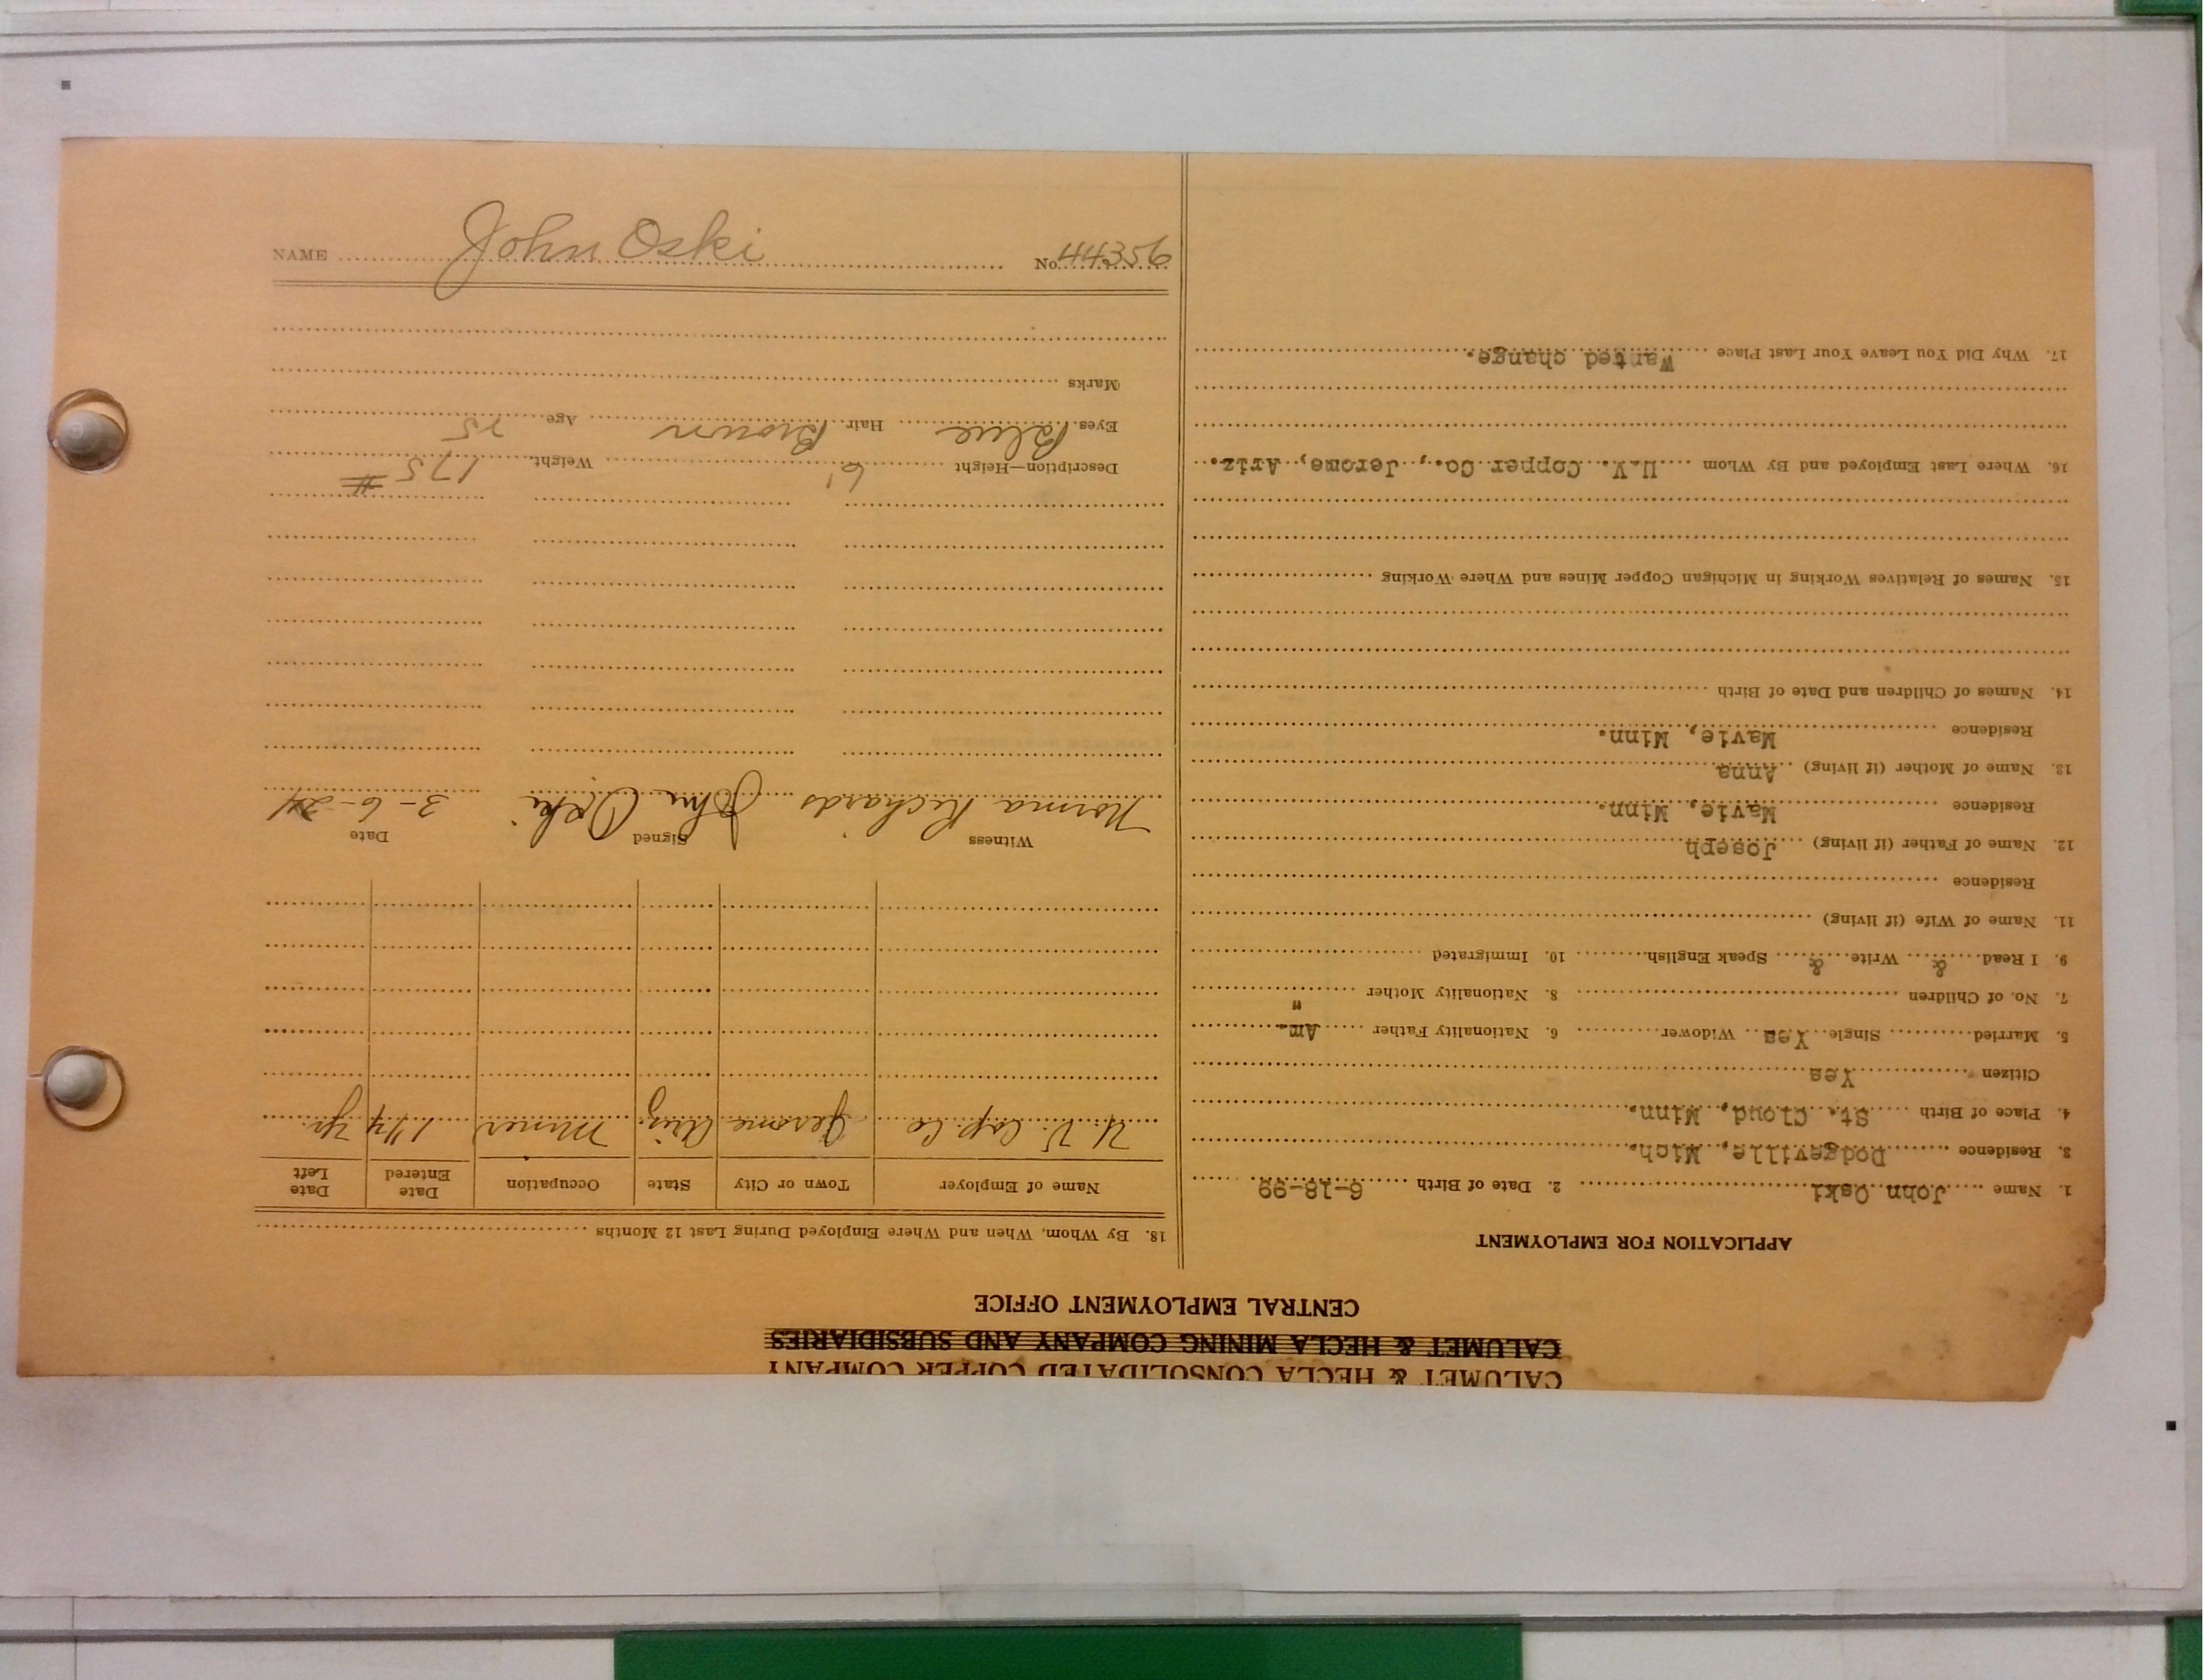 CALUMET & HECLA CONSOLIDATED COPPER COMPANY
CALUMET & HECLA MINING COMPANY AND SUBSIDIARIES
CENTRAL EMPLOYMENT OFFICE
APPLICATION FOR EMPLOYMENT
1. Name John Oski 2. Date of Birth 6-18-99
3. Residence Dodgeville, Mich.
4. Place of Birth St. Cloud, Minn.
Citizen Yes
5. Married Single Yes Widower 6. Nationality Father Am.
7. No. of Children 8. Nationality Mother "
9. I Read & Write & Speak English 10. Immigrated
11. Name of Wife (if living)
Residence
12. Name of Father (if living) Joseph
Residence Mavie, Minn.
13. Name of Mother (if living) Anna
Residence Mavie, Minn.
14. Names of Children and Date of Birth
15. Names of Relatives Working in Michigan Copper Mines and Where Working
16. Where Last Employed and By Whom U.V. Copper Co., Jerome, Ariz.
17. Why Did You Leave Your Last Place Wanted change.
18. By Whom, When and Where Employed During Last 12 Months
Name of Employer Town or City State Occupation Date Entered Date Left
U. V. Cop. Co Jerome Ariz Miner 1 1/4 yr.
Witness Signed Date
Norma Richards John Oski 3-6-24
Description—Height 6' Weight 175 #
Eyes Blue Hair Brown Age 25
Marks
NAME John Oski No. 44356